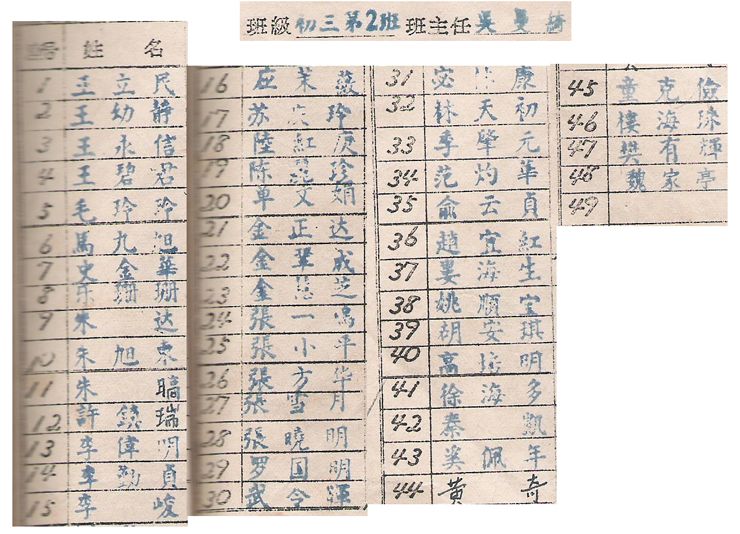 班級 初三第2班 班主任 吳曼
号 姓名
1 王立民
2 王幼静
3 王永信
4 王碧君
5 毛玲玲
6 馬九旭
7 史金華
8 珊珊
9 朱达
10 朱旭东
11 朱暠
12 許鏡瑞
13 李偉明
14 李勤貞
15 李峻
16 应茉薇
17 苏玲
18 陸紅庚
19 陈珍
20 单文娟
21 金正达
22 金翠成
23 金慧芝
24 張一鳴
25 張小平
26 張方华
27 張雪月
28 張曉明
29 罗国明
30 武令
31 宓康
32 林天初
33 季肇元
34 范灼華
35 俞云貞
36 趙宜紅
37 婁海生
38 姚順宝
39 胡安琪
40 高培明
41 徐海多
42 秦凱
43 吴佩年
44 黄奇
45 童克儉
46 樓海珠
47 樊有輝
48 魏家亭
49